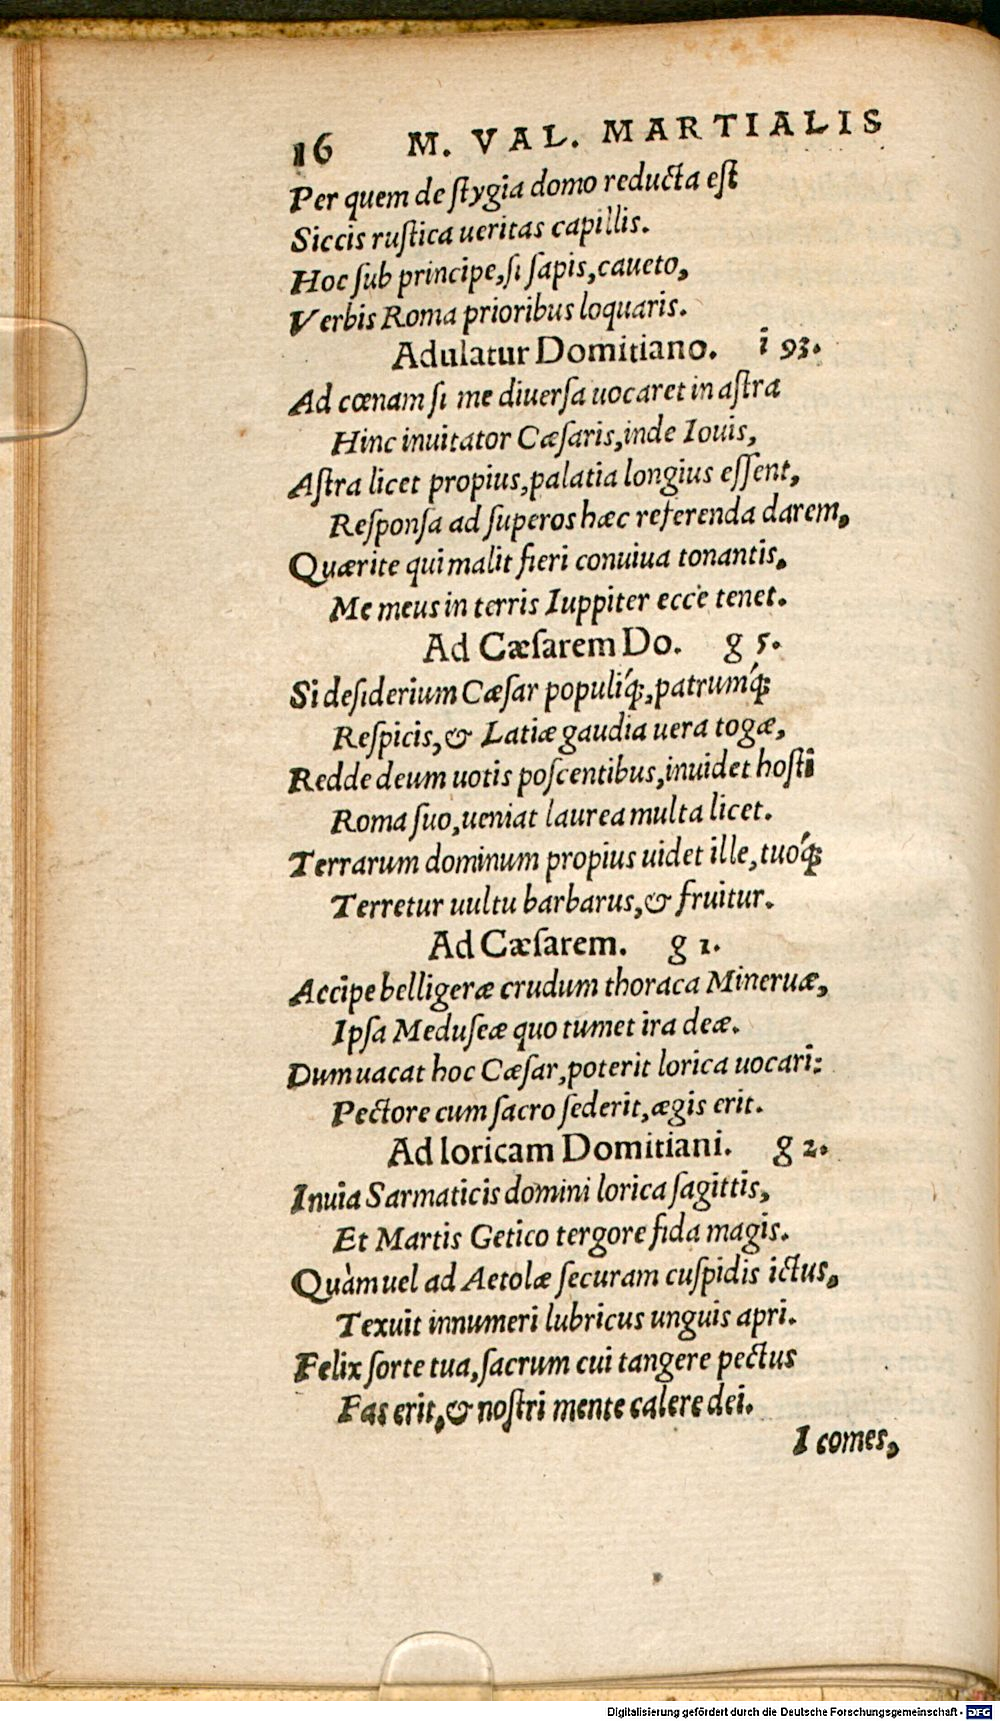 16 M. VAL. MARTIALIS
Per quem de ſtygia domo reducta eſt
Siccis ruſtica ueritas capillis.
Hoc ſub principe, ſi ſapis, caueto,
Verbis Roma prioribus loquaris.
Adulatur Domitiano. i 93.
Ad cœnam ſi me diuerſa uocaret in aſtra
Hinc inuitator Cæſaris, inde Iouis,
Aſtra licet propius, palatia longius eſſent,
Reſponſa ad ſuperos hæc referenda darem,
Quærite qui malit fieri conuiua tonantis,
Me meus in terris Iuppiter ecce tenet.
Ad Cæſarem Do. g 5.
Si deſiderium Cæſar populiq́;, patrumq́;
Reſpicis, & Latiæ gaudia uera togæ,
Redde deum uotis poſcentibus, inuidet hoſti
Roma ſuo, ueniat laurea multa licet.
Terrarum dominum propius uidet ille, tuoq́;
Terretur uultu barbarus, & fruitur.
Ad Cæſarem. g 1.
Accipe belligeræ crudum thoraca Mineruæ,
Ipſa Meduſeæ quo tumet ira deæ.
Dum uacat hoc Cæſar, poterit lorica uocari:
Pectore cum ſacro ſederit, ægis erit.
Ad loricam Domitiani. g 2.
Inuia Sarmaticis domini lorica ſagittis,
Et Martis Getico tergore fida magis.
Quàm uel ad Aetolæ ſecuram cuſpidis ictus,
Texuit innumeri lubricus unguis apri.
Felix ſorte tua, ſacrum cui tangere pectus
Fas erit, & noſtri mente calere dei.
I comes,
Digitalisierung gefördert durch die Deutsche Forschungsgemeinschaft - DFG